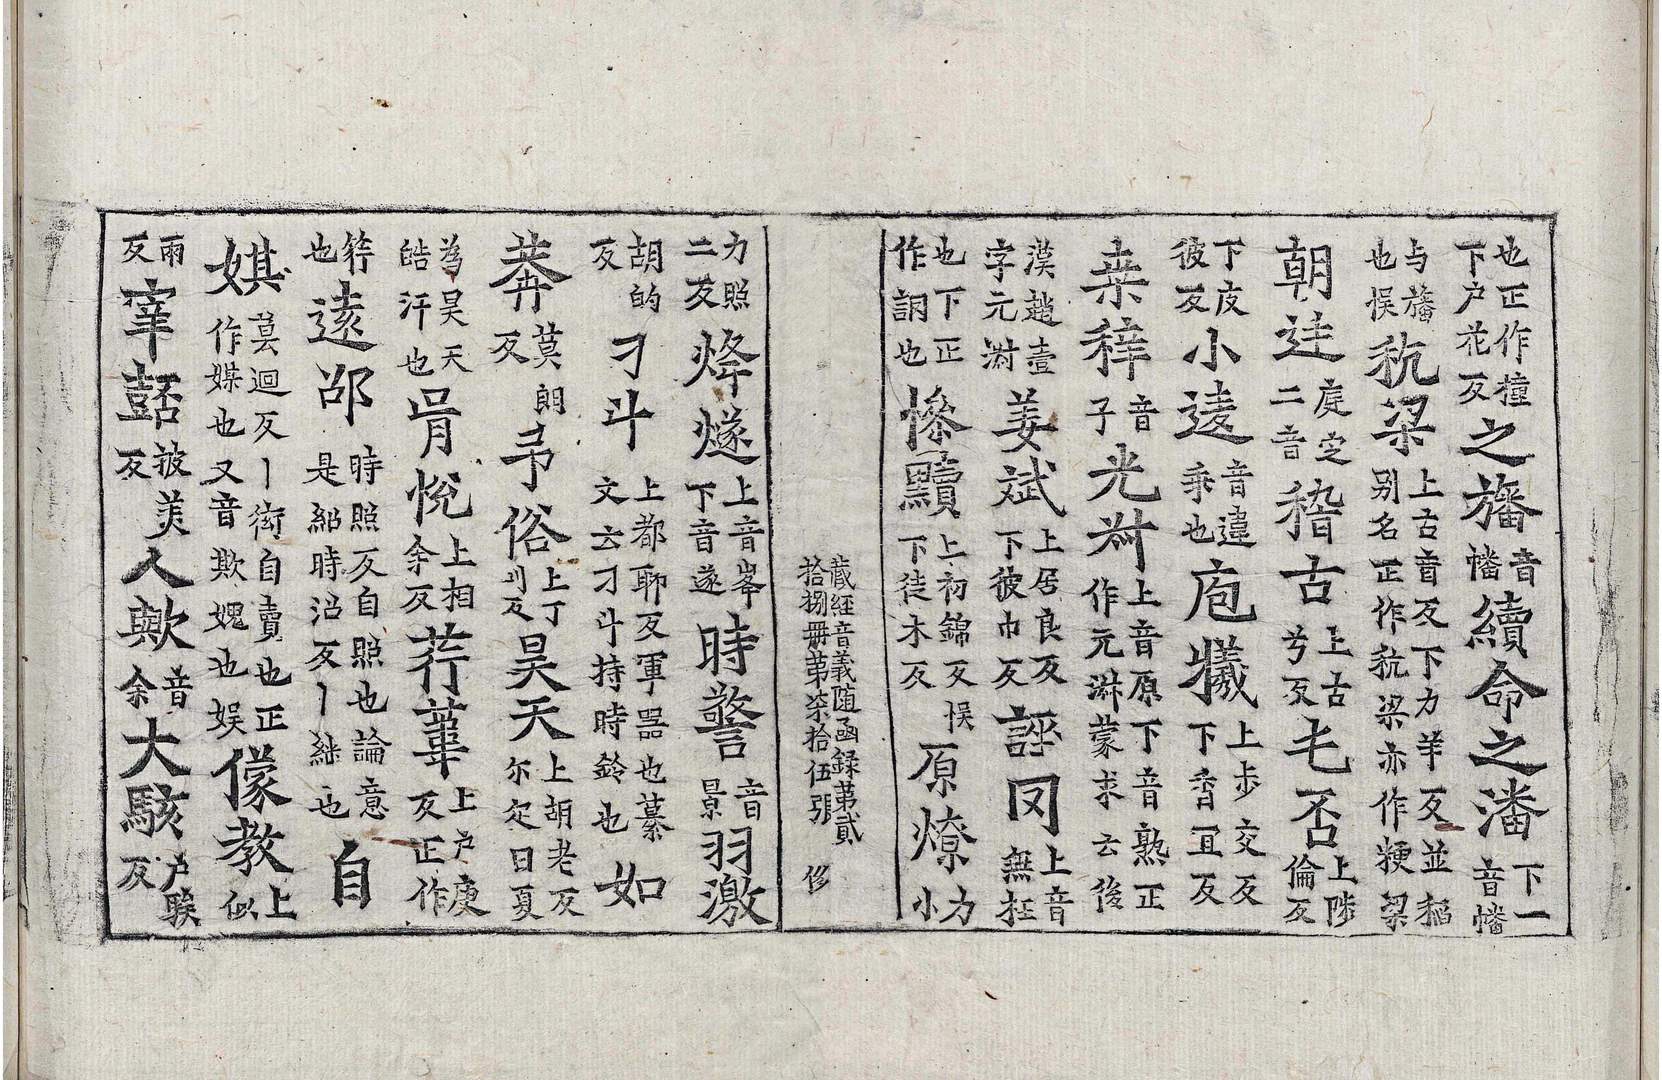 也正作撞下户花反之旛音幡續命之潘下一音幡
与旛也悮秔梁上古盲反下力羊反並稲别名正作秔梁亦作粳梁
朝迋庭定二音稽古上古兮反乇否上陟倫反
下皮彼反小逺音違乘也庖犧上步交反下香宜反
桒稺音子光澍上音原下音熟正作元淋蒙求云後
漢趙壹字元淋姜斌上居良反下彼巾反誣罔上音無抂
也下正作詷也慘黷上初錦反下徒木反悮原燎力小
藏經音義随函録第貳拾捌册苐柒拾伍張 侈
力照二反烽燧上音峯下音遂時警音景羽激
胡的反刁斗上都聊反軍器也纂文云刁斗持時鈴也如
莽莫朗反弔俗上丁刂反昊天上胡老反尔疋曰夏
為昊天皓汗也肙悅上相余反荇葦上户庚反正作
筕也逺邵時照反自照也論意是紹時沼反丨継也自
娸莫迴反丨衒自賣也正作媒也又音欺媿也娱儯教上似
雨反宰嚭披美反人歟音余大駭户騃反